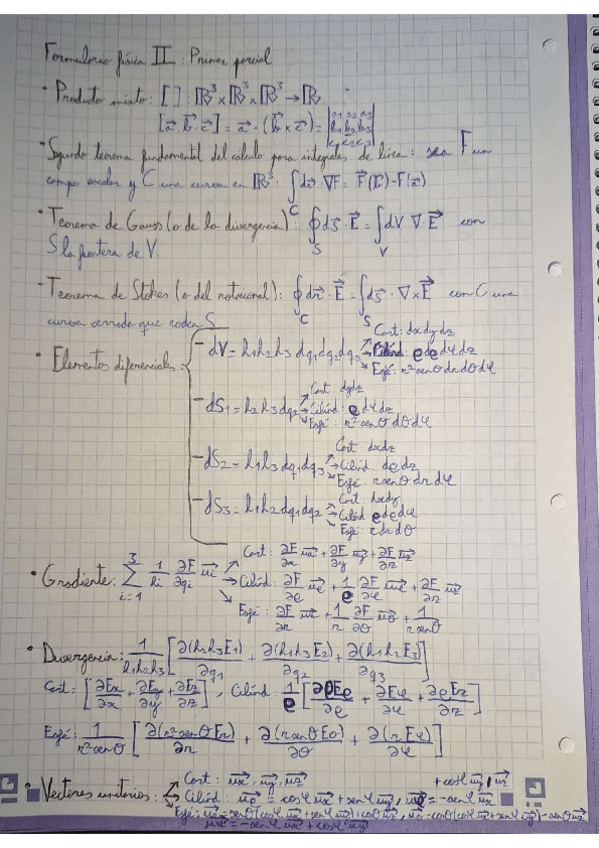 Formulario física II : Primer parcial
· Producto mixto: [ ] : ℝ³×ℝ³×ℝ³→ℝ
[a⃗ b⃗ c⃗] = a⃗ · (b⃗ × c⃗) = |a₁ a₂ a₃ b₁ b₂ b₃ c₁ c₂ c₃|
· Segundo teorema fundamental del calculo para integrales de línea : sea F un
campo escalar y C una curva en ℝ³:
· Teorema de Gauss (o de la divergencia) : ∮_S ds⃗ · E⃗ = ∫_V dV ∇ · E⃗ con
S la frontera de V.
· Teorema de Stokes (o del rotacional) : ∮_C dr⃗ · E⃗ = ∫_S ds⃗ · ∇ × E⃗ con C una
curva cerrada que rodea S
· Elementos diferenciales
- dV = h₁h₂h₃ dq₁dq₂dq₃
Cart: dxdydz
Cilínd: ρdρdφdz
Esfé: r²senθdrdθdφ
- dS₁ = h₂h₃dq₂
Cart: dydz
Cilínd: ρdφdz
Esfé: r²senθdθdφ
- dS₂ = h₁h₃dq₁dq₃
Cart: dxdz
Cilínd: dρdz
Esfé: rsenθdrdφ
- dS₃ = h₁h₂dq₁dq₂
Cart: dxdy
Cilínd: ρdρdφ
Esfé: rdrdθ
· Gradiente: Σ_{i=1}^{3} 1/hi ∂F/∂qi u⃗i
Cart: ∂F/∂x u⃗x + ∂F/∂y u⃗y + ∂F/∂z u⃗z
Cilínd: ∂F/∂ρ u⃗ρ + 1/ρ ∂F/∂φ u⃗φ + ∂F/∂z u⃗z
Esfé: ∂F/∂r u⃗r + 1/r ∂F/∂θ u⃗θ + 1/rsenθ
· Divergencia: 1/h₁h₂h₃ [∂(h₂h₃E₁)/∂q₁ + ∂(h₁h₃E₂)/∂q₂ + ∂(h₁h₂E₃)/∂q₃]
Cart: [∂Ex/∂x + ∂Ey/∂y + ∂Ez/∂z], Cilínd: 1/ρ [∂ρEρ/∂ρ + ∂Eφ/∂φ + ∂ρEz/∂z]
Esfé: 1/r²senθ [∂(r²senθEr)/∂r + ∂(rsenθEθ)/∂θ + ∂(rEφ)/∂φ]
· Vectores unitarios:
Cart: u⃗x, u⃗y, u⃗z
Cilínd: u⃗ρ = cosφ u⃗x + senφ u⃗y, u⃗φ = -senφ u⃗x + cosφ u⃗y, u⃗z
Esfé: u⃗r = senθ(cosφ u⃗x + senφ u⃗y) + cosθ u⃗z, u⃗θ = cosθ(cosφ u⃗x + senφ u⃗y) - senθ u⃗z
u⃗φ = -senφ u⃗x + cosφ u⃗y